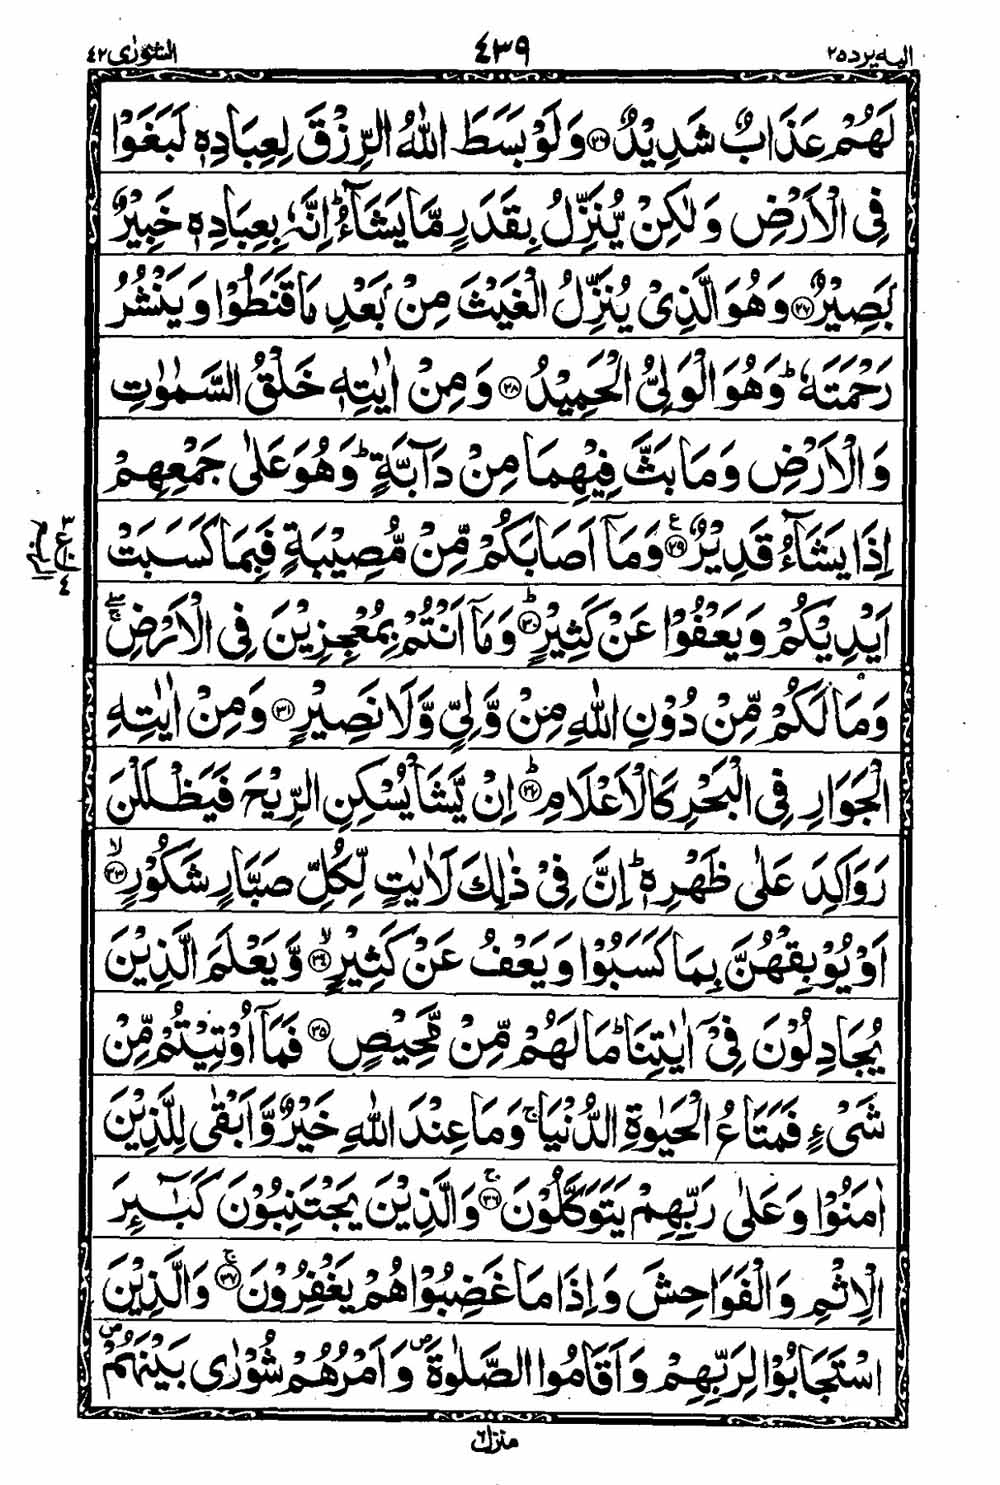 الیه یرد ۲۵
۴۳۹
الشورٰی ۴۲
لَهُمْ عَذَابٌ شَدِيْدٌ ﴿۲۶﴾ وَلَوْ بَسَطَ اللّٰهُ الرِّزْقَ لِعِبَادِهٖ لَبَغَوْا
فِي الْاَرْضِ وَلٰكِنْ يُّنَزِّلُ بِقَدَرٍ مَّا يَشَآءُ ؕ اِنَّهٗ بِعِبَادِهٖ خَبِيْرٌۢ
بَصِيْرٌ ﴿۲۷﴾ وَهُوَ الَّذِيْ يُنَزِّلُ الْغَيْثَ مِنْۢ بَعْدِ مَا قَنَطُوْا وَيَنْشُرُ
رَحْمَتَهٗ ؕ وَهُوَ الْوَلِيُّ الْحَمِيْدُ ﴿۲۸﴾ وَمِنْ اٰيٰتِهٖ خَلْقُ السَّمٰوٰتِ
وَالْاَرْضِ وَمَا بَثَّ فِيْهِمَا مِنْ دَآبَّةٍ ؕ وَهُوَ عَلٰى جَمْعِهِمْ
اِذَا يَشَآءُ قَدِيْرٌ ﴿۲۹﴾ ع وَمَآ اَصَابَكُمْ مِّنْ مُّصِيْبَةٍ فَبِمَا كَسَبَتْ
اَيْدِيْكُمْ وَيَعْفُوْا عَنْ كَثِيْرٍ ﴿۳۰﴾ ؕ وَمَآ اَنْتُمْ بِمُعْجِزِيْنَ فِي الْاَرْضِ ۖۚ
وَمَا لَكُمْ مِّنْ دُوْنِ اللّٰهِ مِنْ وَّلِيٍّ وَّلَا نَصِيْرٍ ﴿۳۱﴾ وَمِنْ اٰيٰتِهِ
الْجَوَارِ فِي الْبَحْرِ كَالْاَعْلَامِ ﴿۳۲﴾ ؕ اِنْ يَّشَاْ يُسْكِنِ الرِّيْحَ فَيَظْلَلْنَ
رَوَاكِدَ عَلٰى ظَهْرِهٖ ؕ اِنَّ فِيْ ذٰلِكَ لَاٰيٰتٍ لِّكُلِّ صَبَّارٍ شَكُوْرٍ ﴿۳۳﴾ ۙ
اَوْ يُوْبِقْهُنَّ بِمَا كَسَبُوْا وَيَعْفُ عَنْ كَثِيْرٍ ﴿۳۴﴾ ۙ وَّيَعْلَمَ الَّذِيْنَ
يُجَادِلُوْنَ فِيْٓ اٰيٰتِنَا ؕ مَا لَهُمْ مِّنْ مَّحِيْصٍ ﴿۳۵﴾ فَمَآ اُوْتِيْتُمْ مِّنْ
شَيْءٍ فَمَتَاعُ الْحَيٰوةِ الدُّنْيَا ۚ وَمَا عِنْدَ اللّٰهِ خَيْرٌ وَّاَبْقٰى لِلَّذِيْنَ
اٰمَنُوْا وَعَلٰى رَبِّهِمْ يَتَوَكَّلُوْنَ ﴿۳۶﴾ ۚ وَالَّذِيْنَ يَجْتَنِبُوْنَ كَبٰٓئِرَ
الْاِثْمِ وَالْفَوَاحِشَ وَاِذَا مَا غَضِبُوْا هُمْ يَغْفِرُوْنَ ﴿۳۷﴾ ۚ وَالَّذِيْنَ
اسْتَجَابُوْا لِرَبِّهِمْ وَاَقَامُوا الصَّلٰوةَ ۪ وَاَمْرُهُمْ شُوْرٰى بَيْنَهُمْ ۪
منزل ۶